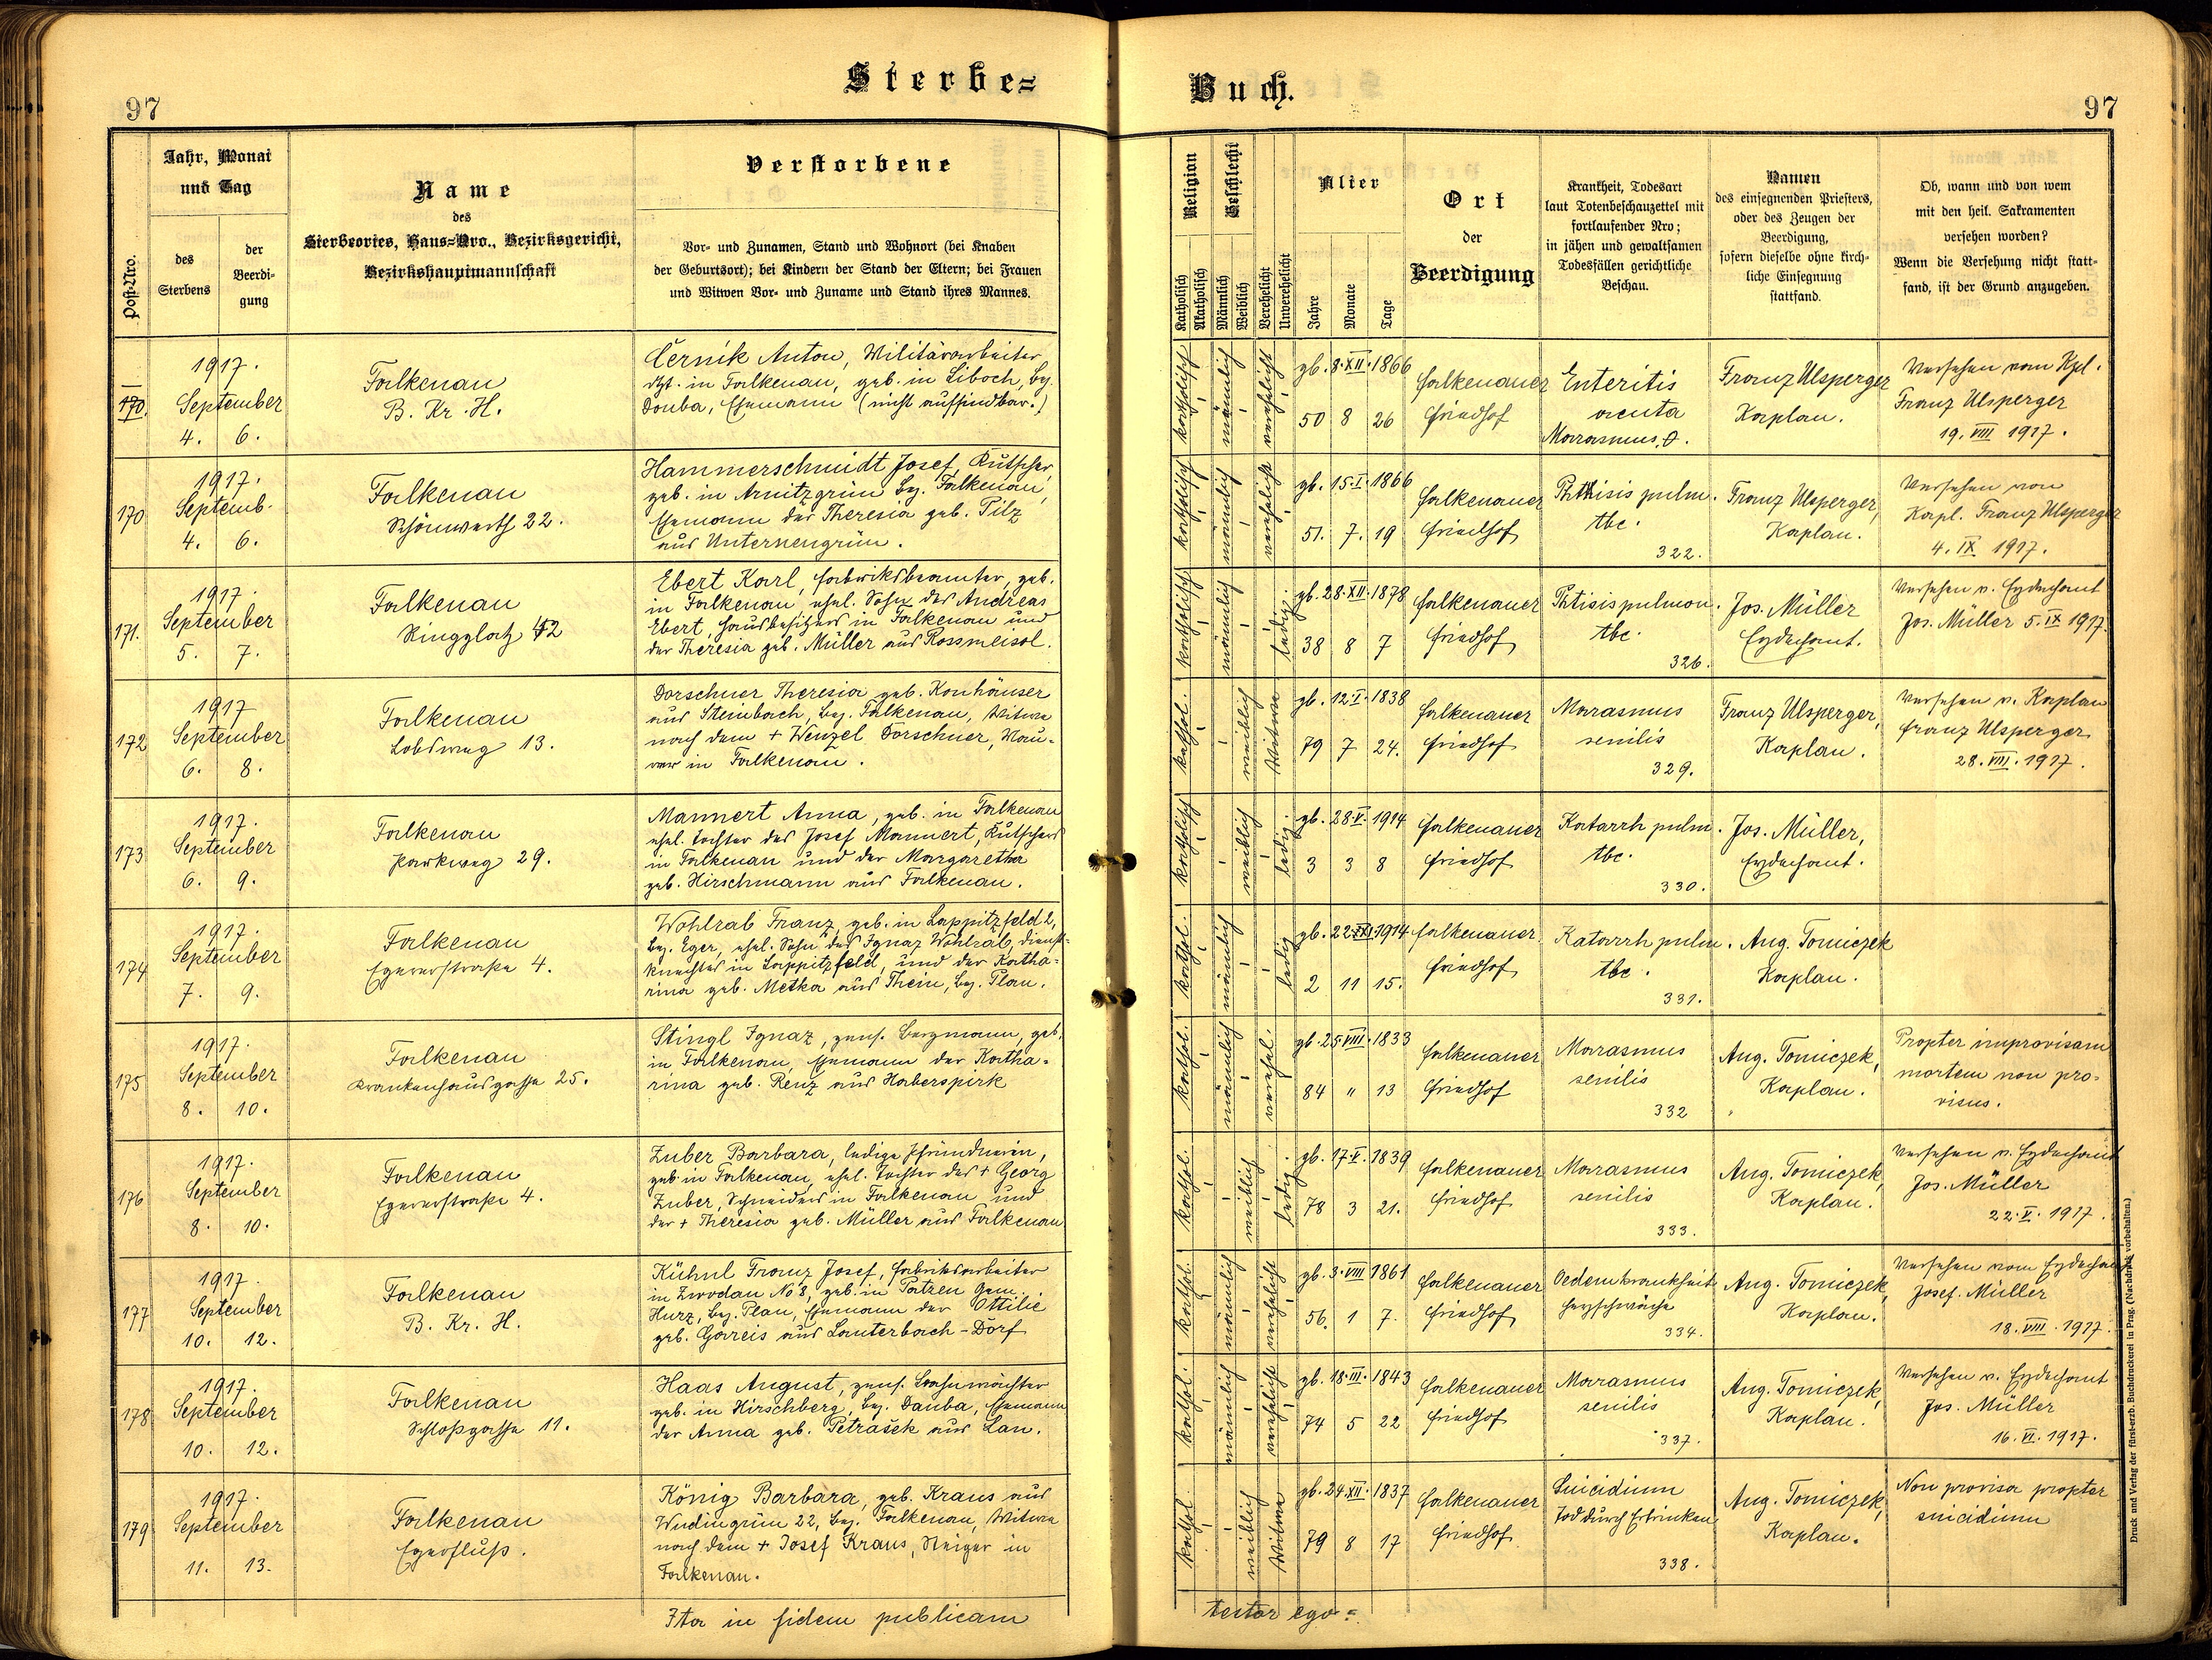 97
Sterbe=
Buch.
97
Post-Nro.
Jahr, Monat
und Tag
des
Sterbens
der
Beerdi-
gung
Name
des
Sterbeortes, Haus=Nro., Bezirksgericht,
Bezirkshauptmannschaft
Verstorbene
Vor- und Zunamen, Stand und Wohnort (bei Knaben
der Geburtsort); bei Kindern der Stand der Eltern; bei Frauen
und Witwen Vor- und Zuname und Stand ihres Mannes.
Religion
Katholisch
Akatholisch
Geschlecht
Männlich
Weiblich
Verehelicht
Unverehelicht
Alter
Jahre
Monate
Tage
Ort
der
Beerdigung
Krankheit, Todesart
laut Totenbeschauzettel mit
fortlaufender Nro;
in jähen und gewaltsamen
Todesfällen gerichtliche
Beschau.
Namen
des einsegnenden Priesters,
oder des Zeugen der
Beerdigung,
sofern dieselbe ohne kirch-
liche Einsegnung
stattfand.
Ob, wann und von wem
mit den heil. Sakramenten
versehen worden?
Wenn die Versehung nicht statt-
fand, ist der Grund anzugeben.
170.
1917.
September
4. 6.
Falkenau
B. Kr. H.
Černik Anton, Militärarbeiter
dzt. in Falkenau, geb. in Liboch, Bez.
Douba, Ehemann (nicht auffindbar.)
katholisch
männlich
verehelicht
gb. 8.XII.1866
50 8 26
Falkenauer
Friedhof
Enteritis
acuta
Marasmus.
Franz Ulsperger
Kaplan.
Versehen vom Kpl.
Franz Ulsperger
19. VIII 1917.
170
1917.
Septemb.
4. 6.
Falkenau
Schönwerth 22.
Hammerschmidt Josef, Kutscher,
geb. in Arnitzgrün Bez. Falkenau,
Ehemann der Theresia geb. Pilz
aus Unterneugrün.
katholisch
männlich
verehelicht
gb. 15.I.1866
51. 7. 19
Falkenauer
Friedhof
Phthisis pulm.
tbc.
322.
Franz Ulsperger,
Kaplan.
Versehen von
Kapl. Franz Ulsperger
4. IX 1917.
171.
1917.
September
5. 7.
Falkenau
Ringplatz 42
Ebert Karl, Fabriksbeamter, geb.
in Falkenau, ehel. Sohn des Andreas
Ebert, Hausbesitzers in Falkenau und
der Theresia geb. Müller aus Rossmeisol.
katholisch
männlich
ledig.
gb. 28.XII.1878
38 8 7
Falkenauer
Friedhof
Phtisis pulmon.
tbc.
326.
Jos. Müller
Erzdechant.
Versehen v. Erzdechant
Jos. Müller 5. IX 1917.
172
1917
September
6. 8.
Falkenau
Lobsweg 13.
Dorschner Theresia geb. Konhäuser
aus Steinbach, Bez. Falkenau, Witwe
nach dem + Wenzel Dorschner, Mau-
rer in Falkenau.
kathol.
weiblich
Witwe
gb. 12.I.1838
79 7 24.
Falkenauer
Friedhof
Marasmus
senilis
329.
Franz Ulsperger,
Kaplan.
Versehen v. Kaplan
Franz Ulsperger
28. VIII. 1917.
173
1917.
September
6. 9.
Falkenau
Parkweg 29.
Mannert Anna, geb. in Falkenau
ehel. Tochter des Josef Mannert, Kutschers
in Falkenau und der Margaretha
geb. Hirschmann aus Falkenau.
katholisch
weiblich
ledig.
gb. 28.V.1914
3 3 8
Falkenauer
Friedhof
Katarrh pulm.
tbc.
330.
Jos. Müller,
Erzdechant.
174
1917.
September
7. 9.
Falkenau
Egererstraße 4.
Wohlrab Franz, geb. in Lappitzfeld 2,
Bez. Eger, ehel. Sohn des Ignaz Wohlrab, Dienst-
knechtes in Lappitzfeld, und der Katha-
rina geb. Metka aus Thein, Bez. Plan.
kathol.
männlich
ledig
2 11 15.
Falkenauer
Friedhof
Katarrh pulm.
tbc.
331.
Aug. Tomiczek
Kaplan.
175
1917.
September
8. 10.
Falkenau
Krankenhausgasse 25.
Stingl Ignaz, pens. Bergmann, geb.
in Falkenau, Ehemann der Katha-
rina geb. Renz aus Haberspirk
kathol.
männlich
verehel.
gb. 25.VIII.1833
84 " 13
Falkenauer
Friedhof
Marasmus
senilis
332
Aug. Tomiczek,
Kaplan.
Propter improvisam
mortem non pro-
visus.
176
1917.
September
8. 10.
Falkenau
Egererstraße 4.
Zuber Barbara, ledige Pfründnerin,
geb. in Falkenau, ehel. Tochter des + Georg
Zuber, Schneiders in Falkenau und
der + Theresia geb. Müller aus Falkenau
kathol.
weiblich
ledig.
gb. 17.V.1839
78 3 21.
Falkenauer
Friedhof
Marasmus
senilis
333.
Aug. Tomiczek,
Kaplan.
Versehen v. Erzdechant
Jos. Müller
22. V. 1917.
177
1917.
September
10. 12.
Falkenau
B. Kr. H.
Kühnl Franz Josef, Fabriksarbeiter
in Zwodau No 8, geb. in Patzen Gem.
Hurz, Bez. Plan, Ehemann der Ottilie
geb. Gareis aus Lauterbach-Dorf
kathol.
männlich
verehelicht
gb. 3.VIII 1861
56. 1 7.
Falkenauer
Friedhof
Oedemkrankheit
Herzschwäche
334.
Aug. Tomiczek,
Kaplan.
Versehen vom Erzdechant
Josef. Müller
18. VIII. 1917.
178
1917.
September
10. 12.
Falkenau
Schloßgasse 11.
Haas August, pens. Bahnwächter
geb. in Hirschberg, Bez. Dauba, Ehemann
der Anna geb. Petrašek aus Lan.
kathol.
männlich
verehelicht
gb. 18.III.1843
74 5 22
Falkenauer
Friedhof
Marasmus
senilis
337.
Aug. Tomiczek,
Kaplan.
Versehen v. Erzdechant
Jos. Müller
16. VI. 1917.
179
1917.
September
11. 13.
Falkenau
Egerfluß.
König Barbara, geb. Kraus aus
Wudingrün 22, Bez. Falkenau, Witwe
nach dem + Josef Kraus, Steiger in
Falkenau.
kathol.
weiblich
Witwe
gb. 24.XII.1837
79 8 17
Falkenauer
Friedhof
Suicidium
Tod durch Ertrinken
338.
Aug. Tomiczek,
Kaplan.
Non provisa propter
suicidium
Ita in fidem publicam
testor ego =
Druck und Verlag der fürst-erzb. Buchdruckerei in Prag. (Nachdruck vorbehalten.)